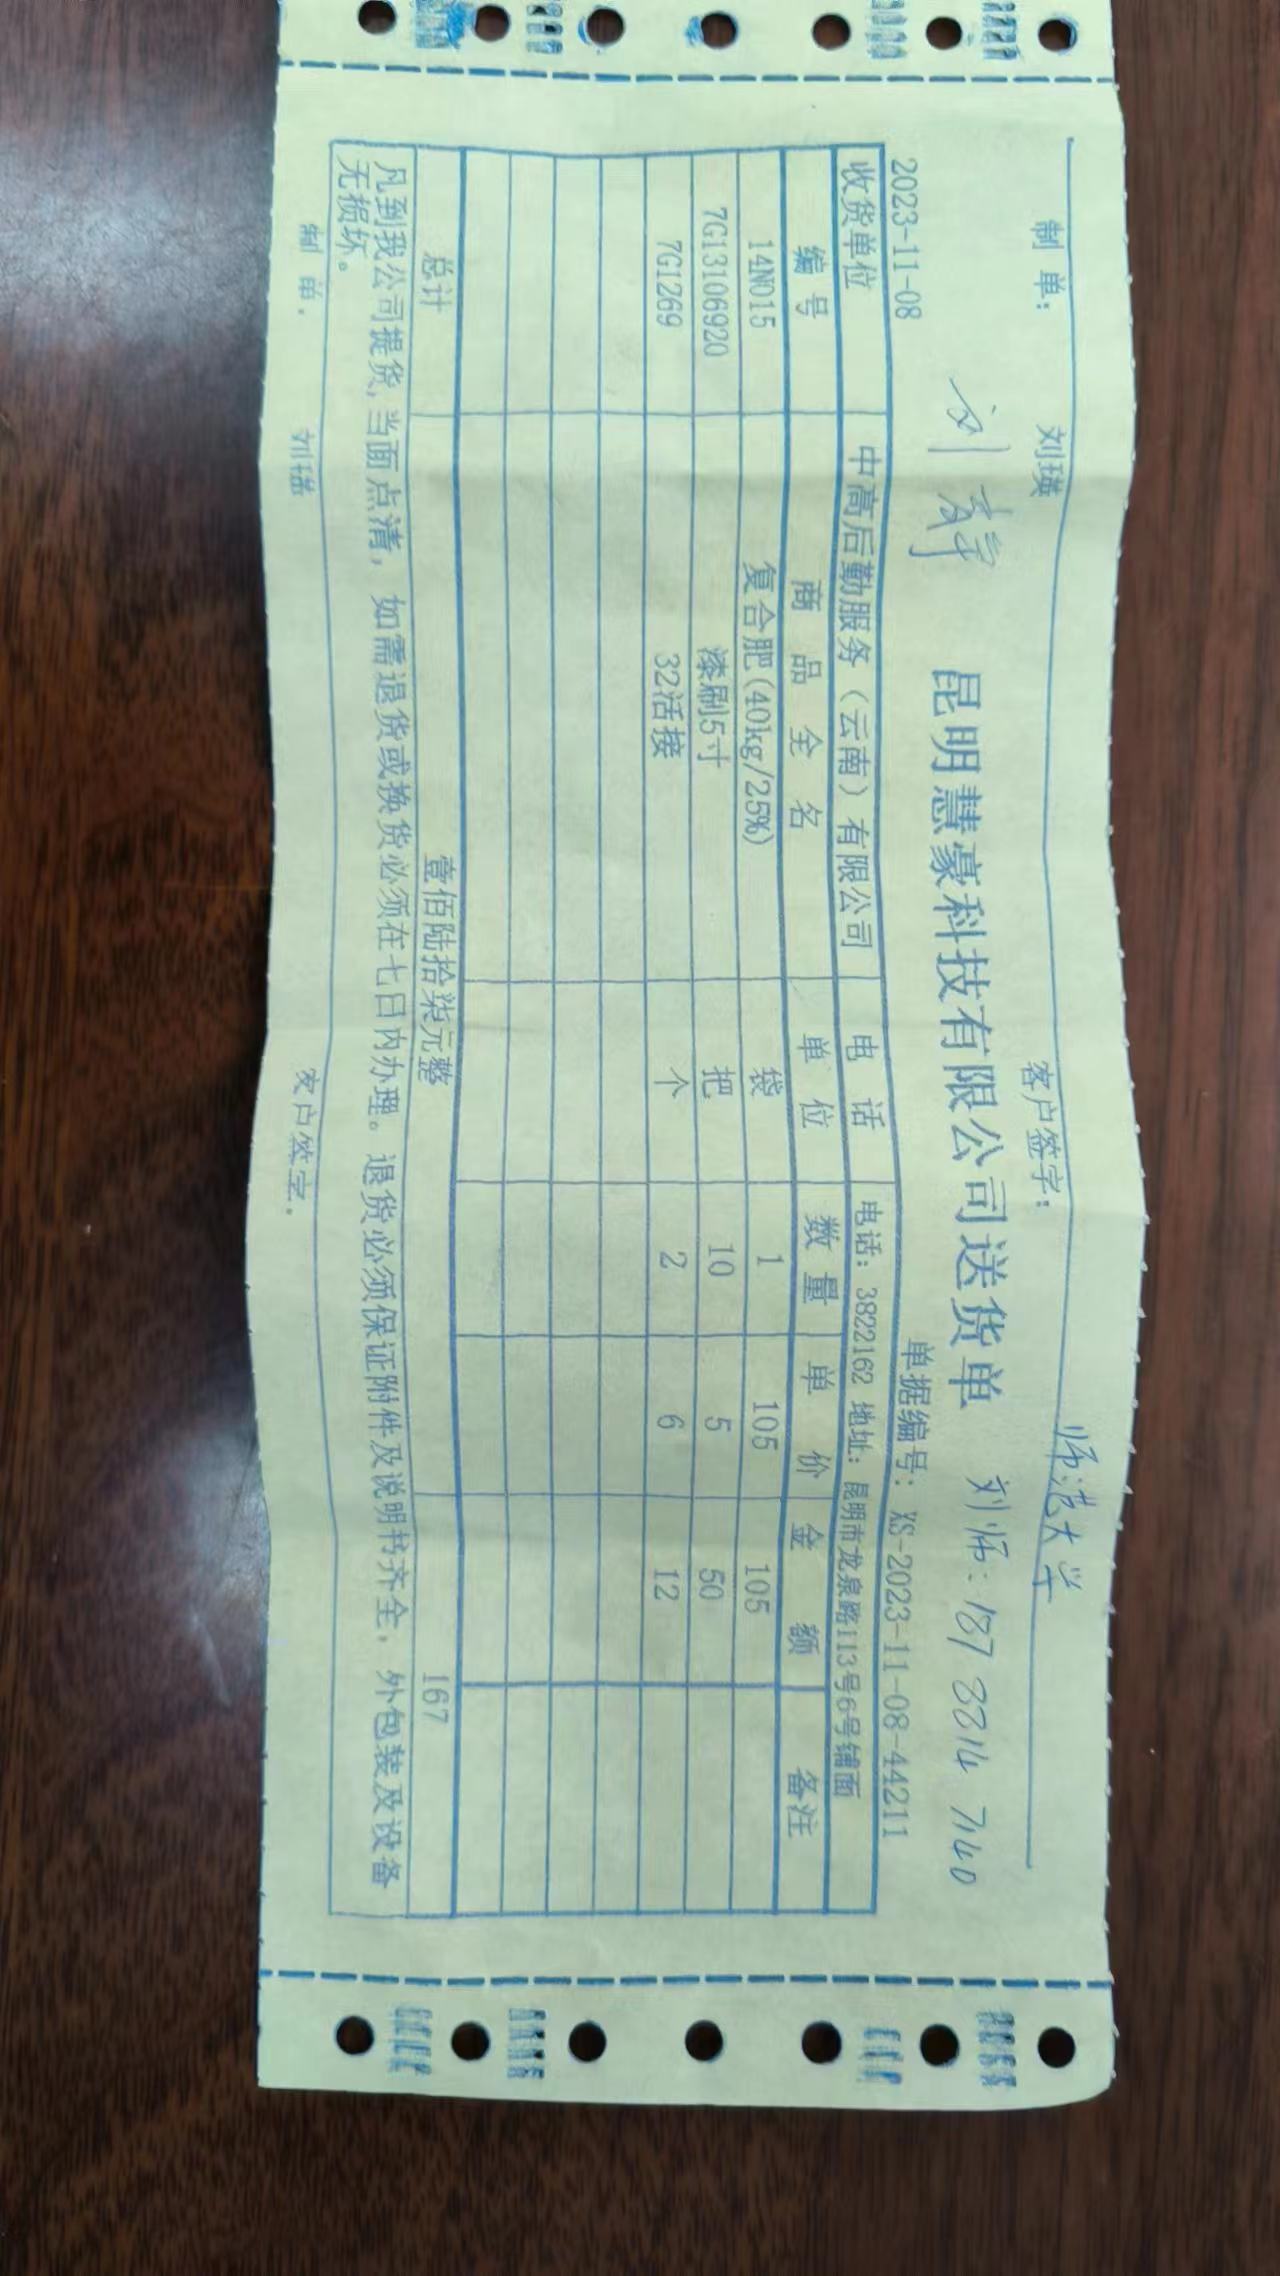 制 单： 刘瑛 客户签字：
师范大学
昆明慧豪科技有限公司送货单 刘师：187 8814 7140
2023-11-08 单据编号：XS-2023-11-08-44211
收货单位 中高后勤服务（云南）有限公司 电 话 电话：3822162 地址：昆明市龙泉路113号6号铺面
编 号 商 品 全 名 单 位 数 量 单 价 金 额 备注
14N015 复合肥(40kg/25%) 袋 1 105 105
7G13106920 漆刷5寸 把 10 5 50
7G1269 32活接 个 2 6 12
总计 壹佰陆拾柒元整 167
凡到我公司提货,当面点清，如需退货或换货必须在七日内办理。退货必须保证附件及说明书齐全，外包装及设备
无损坏。
制 单： 刘瑛 客户签字：